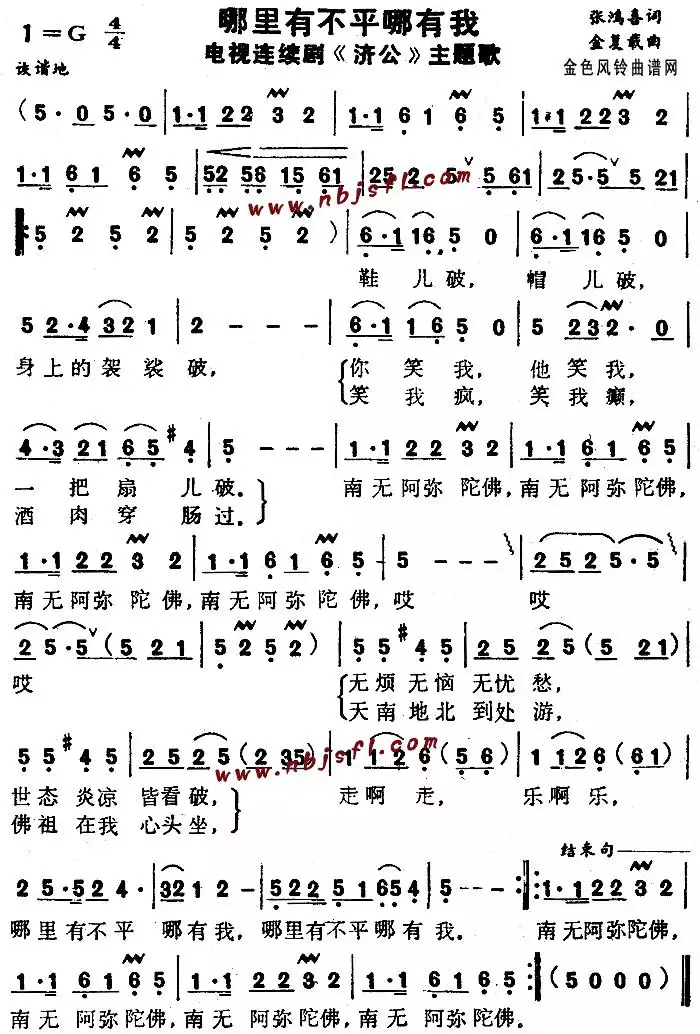 哪里有不平哪有我
1=G 4/4
张鸿喜词
电视连续剧《济公》主题歌
金复载曲
诙谐地
金色风铃曲谱网
(5·05·0 | 1·1 22 3 2 | 1·1 61 6 5 | 1·1 22 3 2 |
1·1 61 6 5 | 52 56 15 61 | 25 2 5 ∨ 5 61 | 25·5 ∨ 5 21 |
www.nbjsfl.com
5 2 5 2 | 5 2 5 2 ) | 6·1 16 5 0 | 6·1 16 5 0 |
鞋儿破, 帽儿破,
5 2·4 32 1 | 2 - - - | 6·1 16 5 0 | 5 232·0 |
身上的袈裟破, 你笑我, 他笑我,
笑我疯, 笑我癫,
4·3 21 6 5 #4 | 5 - - - | 1·1 22 3 2 | 1·1 61 6 5 |
一把扇儿破。 南无阿弥陀佛,南无阿弥陀佛,
酒肉穿肠过。
1·1 22 3 2 | 1·1 61 6 5 | 5 - - - | 25 25 5·5 |
南无阿弥陀佛,南无阿弥陀佛,哎 哎
25·5 ∨ (5 21 | 5 2 5 2 ) | 5 5 #4 5 | 25 25 (5 21) |
哎 无烦无恼无忧愁,
天南地北到处游,
5 5 #4 5 | 25 25 (2 35) | 1 12 6 (56) | 1 12 6 (61) |
www.nbjsfl.com
世态炎凉皆看破, 走啊走, 乐啊乐,
佛祖在我心头坐,
结束句
2 5·5 2 4· | 32 1 2 - | 5 22 5 1 65 4 | 5 - - :‖: 1·1 22 3 2 |
哪里有不平 哪有我, 哪里有不平哪有我。 南无阿弥陀佛,
1·1 61 6 5 | 1·1 22 3 2 | 1·1 61 6 5 :‖ (5 0 0 0) ‖
南无阿弥陀佛,南无阿弥陀佛,南无阿弥陀佛。